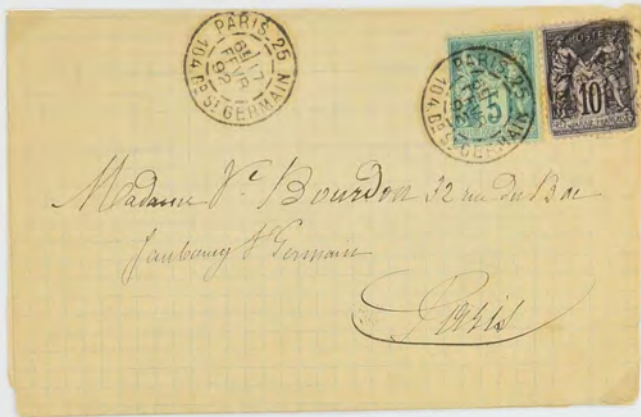 PARIS. 25
6E 17
FEVR
92
104 Bd ST GERMAIN
PARIS. 25
104 Bd ST GERMAIN
5
POSTE
10
Madame Ve Bourdon 32 rue du Bac
faubourg St Germain
Paris